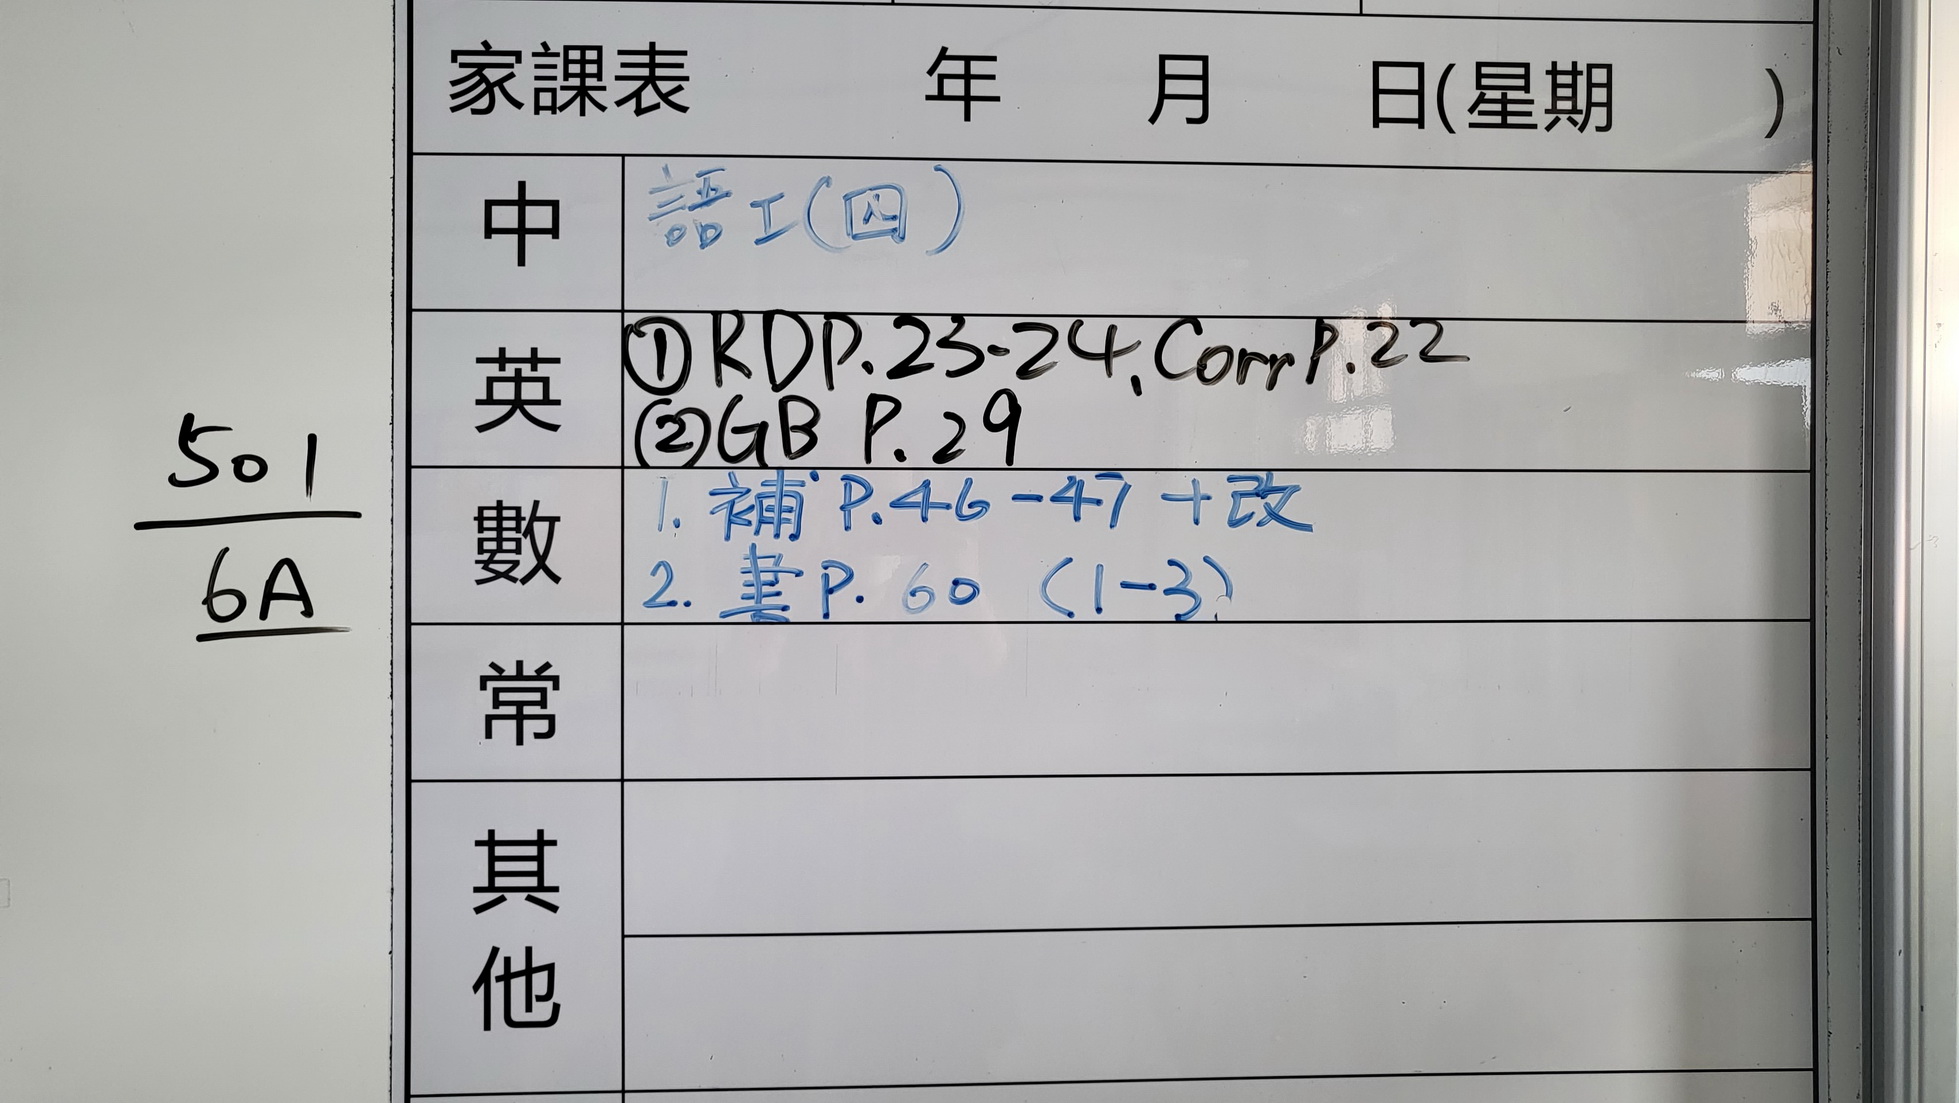 家課表 年 月 日(星期 )
中 語工(四)
英 ①RD P.23-24、Corr P.22
②GB P.29
數 1. 補 P.46-47 + 改
2. 書 P. 60 (1-3)
常
其他
501
6A